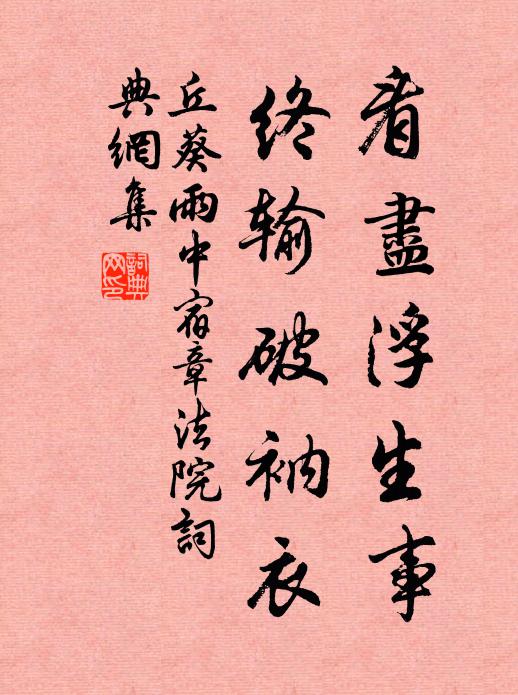 看盡浮生事
終输破衲衣
丘葵雨中宿章法院詞
典網集
詞典網印